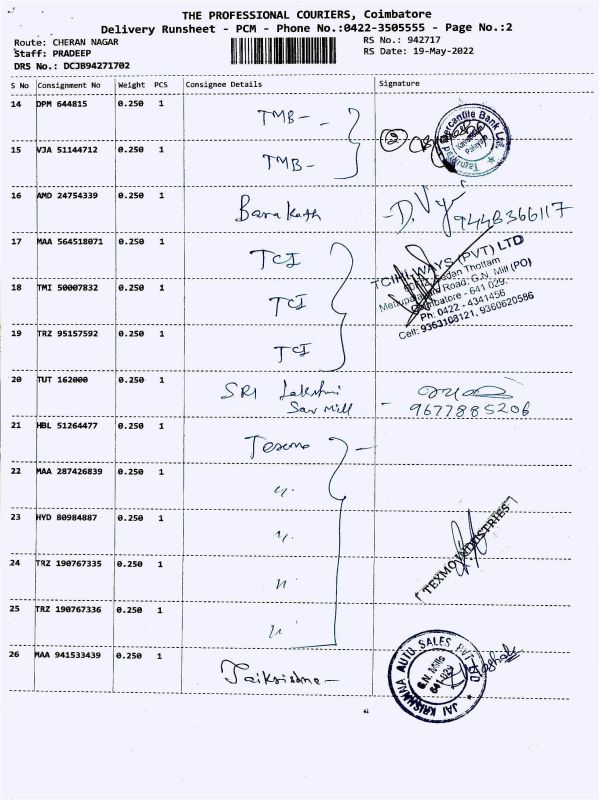 THE PROFESSIONAL COURIERS, Coimbatore
Delivery Runsheet - PCM - Phone No.:0422-3505555 - Page No.:2
Route: CHERAN NAGAR RS No.: 942717
Staff: PRADEEP RS Date: 19-May-2022
DRS No.: DCJB94271702
S No Consignment No Weight PCS Consignee Details Signature
14 DPM 644815 0.250 1 TMB - -
Mercantile Bank Ltd.
15 VJA 51144712 0.250 1 TMB -
16 AMD 24754339 0.250 1 Barakath
9448366117
17 MAA 564518071 0.250 1 TCI
(PVT) LTD
Thottam
Road, G.N. Mill (PO)
Coimbatore - 641 029.
Ph: 0422 - 4341456
Cell: 9363108121, 9360620586
18 TMI 50007832 0.250 1 TCI
19 TRZ 95157592 0.250 1 TCI
20 TUT 162000 0.250 1 SRI Lakshmi
Saw Mill - 9677885206
21 HBL 51264477 0.250 1 Texmo -
22 MAA 287426839 0.250 1 "
23 HYD 80984887 0.250 1 "
24 TRZ 190767335 0.250 1 "
TEXMO INDUSTRIES
25 TRZ 190767336 0.250 1 "
26 MAA 941533439 0.250 1 Jaikrishna -
JAI KRISHNAA AUTO SALES PVT LTD
G.N. Mills
641 029